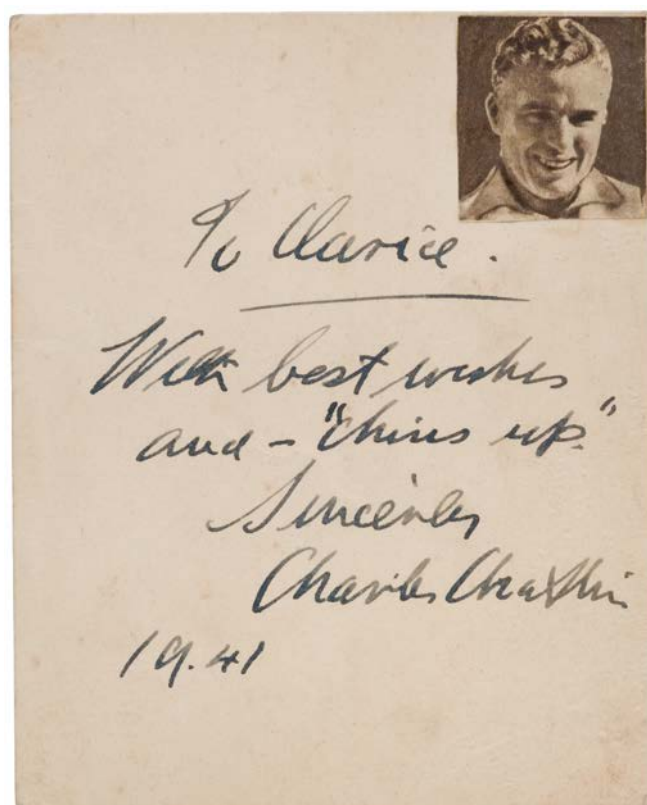 To Clarice.
With best wishes
and - "chins up."
Sincerely
Charles Chaplin
19.41